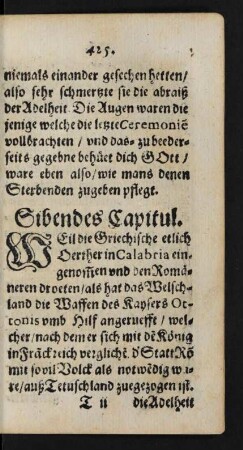 425.
niemals einander gesechen hetten/
also sehr schmertzte sie die abraiß
der Adelheit Die Augen waren die
jenige welche die letzte Ceremoniẽ
vollbrachten / vnd das- zu beeder-
seits gegebne behüet dich GOtt /
ware eben also / wie mans denen
Sterbenden zugeben pflegt.
Sibendes Capitul.
WEil die Griechische etlich
Oerther in Calabria ein-
genom̃en vnd den Romä-
neren droeten / als hat das Welsch-
land die Waffen des Kaysers Ot-
tonis vmb Hilf angeruefft / wel-
cher / nach dem er sich mit dẽ König
in Frãckreich verglichẽ. d'Statt Rõ
mit so vil Volck als notwẽdig wa-
re / auß Teutschland zuegezogen ist.
T ii die Adelheit